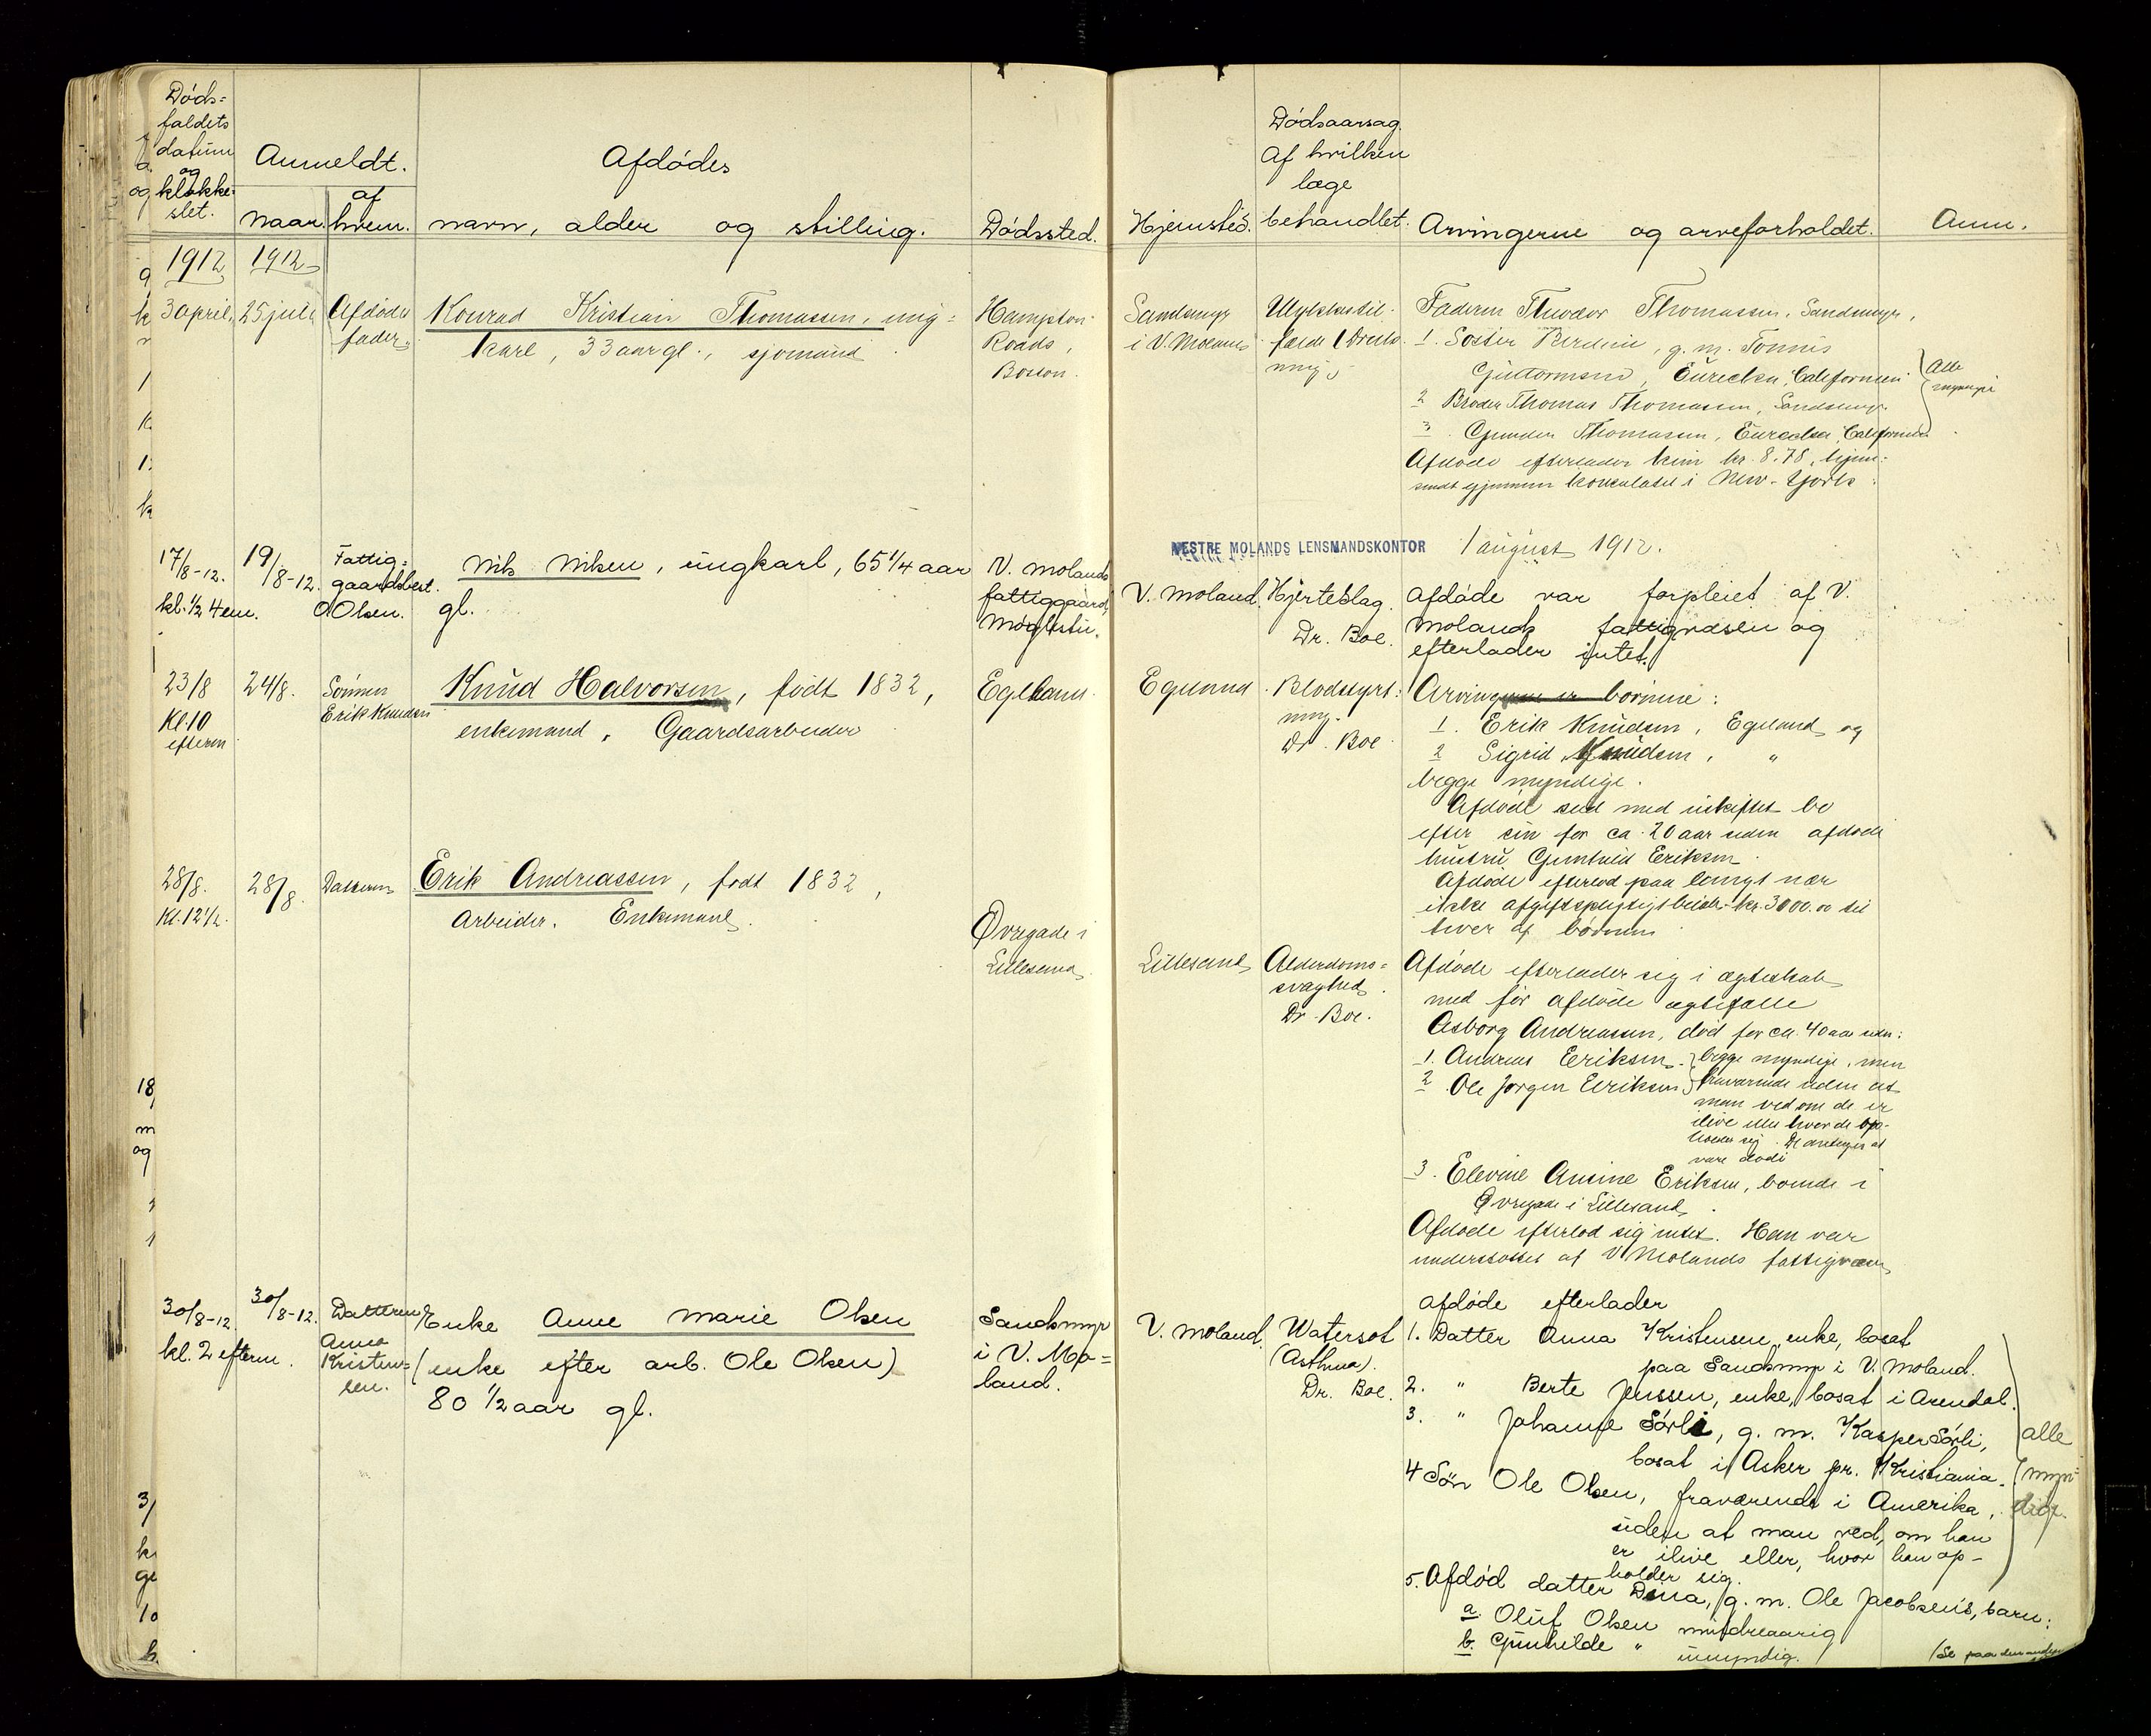 Døds=
faldets
datum
og
klokke-
slet.
Anmeldt.
naar.
af
hvem.
Afdødes
navn, alder og stilling.
Dødssted.
Hjemsted.
Dødsaarsag.
Af hvilken
læge
behandlet.
Arvingerne og arveforholdet.
Anm.
1912
1912
3 april.
25 juli
Afdødes
fader
Konrad Kristian Thomassen, ung=
karl, 33 aar gl., sjømand
Hampton
Roads,
Boston.
Sandsmyr
i V. Moland
Ulykkestil-
fælde (Drukn-
ing)
Faderen Theodor Thomassen, Sandsmyr,
1. Søster Berdine, g. m. Tønnis
Guttormsen, Eurecka, Californien
2 Broder Thomas Thomassen, Sandsmyr.
3. Gunder Thomassen, Eurecka, Californien
Alle
myndige
Afdøde efterlader kun kr. 8.78, hjem=
sendt gjennem konsulatet i New-York.
VESTRE MOLANDS LENSMANDSKONTOR 1 august 1912.
17/8-12.
kl. 1/2 4 em.
19/8-12.
Fattig=
gaardsbest.
O Olsen.
Nils Nilsen, ungkarl, 65 1/4 aar
gl.
V. Molands
fattiggaard,
Møglestu.
V. Moland.
Hjerteslag.
Dr. Boe.
Afdøde var forpleiet af V.
Molands fattigvæsen og
efterlader intet.
23/8
Kl. 10
efterm
24/8.
Sønnen
Erik Knudsen
Knud Halvorsen, født 1832,
enkemand, Gaardsarbeider
Egeland.
Egeland.
Blodstyrt=
ning.
Dr. Boe
Arvingerne er børnene:
1. Erik Knudsen, Egeland og
2 Sigrid Knudsen, "
begge myndige.
Afdøde sad med uskiftet bo
efter sin for ca. 20 aar siden afdøde
hustru Gunhild Eriksen.
Afdøde efterlod paa langt nær
ikke afgiftspligtigt beløb kr. 3000.00 til
hver af børnene.
28/8.
Kl. 12 1/2.
28/8
Datteren
Erik Andreassen, født 1832,
Arbeider. Enkemand.
Øvregade i
Lillesand
Lillesand
Alderdoms=
svaghed.
Dr. Boe.
Afdøde efterlader sig i ægteskab
med før afdøde ægtefælle
Asborg Andreassen, død for ca. 40 aar siden:
1. Andreas Eriksen
2. Ole Jørgen Eriksen
begge myndige, men
fraværende uden at
man ved om de er
ilive eller hvor de op-
holder sig. De antages at
være døde
3. Elevine Amine Eriksen, boende i
Øvregade i Lillesand.
Afdøde efterlod sig intet. Han var
understøttet af V Molands fattigvæsen
30/8-12.
kl. 2 efterm.
30/8-12.
Datteren
Anna
Kristen=
sen.
Enke Anne Marie Olsen
(enke efter arb. Ole Olsen)
80 1/2 aar gl.
Sandsmyr
i V. Mo=
land.
V. Moland.
Watersot
(Asthma).
Dr. Boe.
Afdøde efterlader
1. Datter Anna Kristensen, enke, bosat
paa Sandsmyr i V. Moland.
2. " Berte Jenssen, enke, bosat i Arendal.
3. " Johanne Sørli, g. m. Kasper Sørli,
bosat i Asker pr. Kristiania.
4 Søn Ole Olsen, fraværende i Amerika,
uden at man ved, om han
er ilive eller, hvor han op-
holder sig.
alle
myn=
dige.
5. Afdød datter Dina, g. m. Ole Jacobsen's, barn:
a. Oluf Olsen mindreaarig
b. Gunhilde " umyndig.
(Se paa den anden